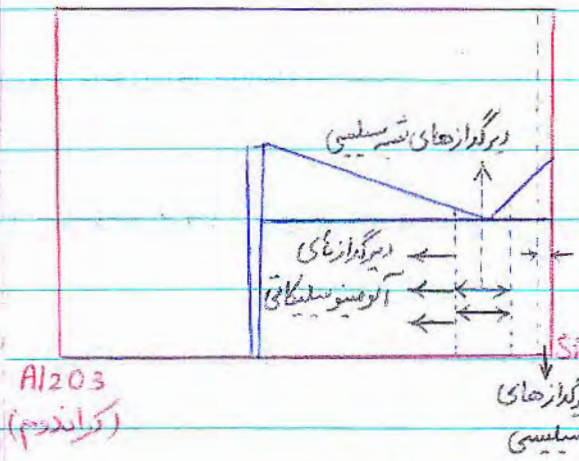 دیرگدازهای شبه سیلیسی
دیرگدازهای
آلومینو سیلیکاتی
Al2O3
(کراندوم)
Si
دیرگدازهای
سیلیسی